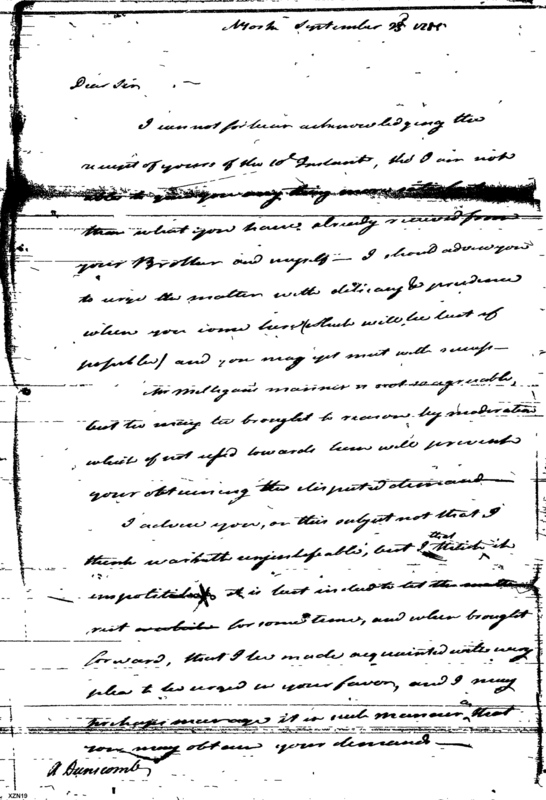 September 25th 1788
Dear Sir
I cannot forbear acknowledging the
receipt of yours of the 10th Instant, tho I am not
able to give you any thing more
than what you have already received from
your Brother and myself — I should advise you
to urge the matter with delicacy & prudence
when you come here (which will be best if
possible) and you may yet meet with success —
Mr Milligan's manner is not so agreeable,
but he may be brought to reason by moderation
which if not used towards him will prevent
your obtaining the disputed demand —
I advise you, on this subject not that I
think warmth unjustifiable, but that I think it
impolitic it is best indeed to let the matter
rest for some time, and when brought
forward, that I be made acquainted with every
plea to be urged in your favor, and I may
perhaps manage it in such manner, that
you may obtain your demand —
A Dunscomb
XZN19